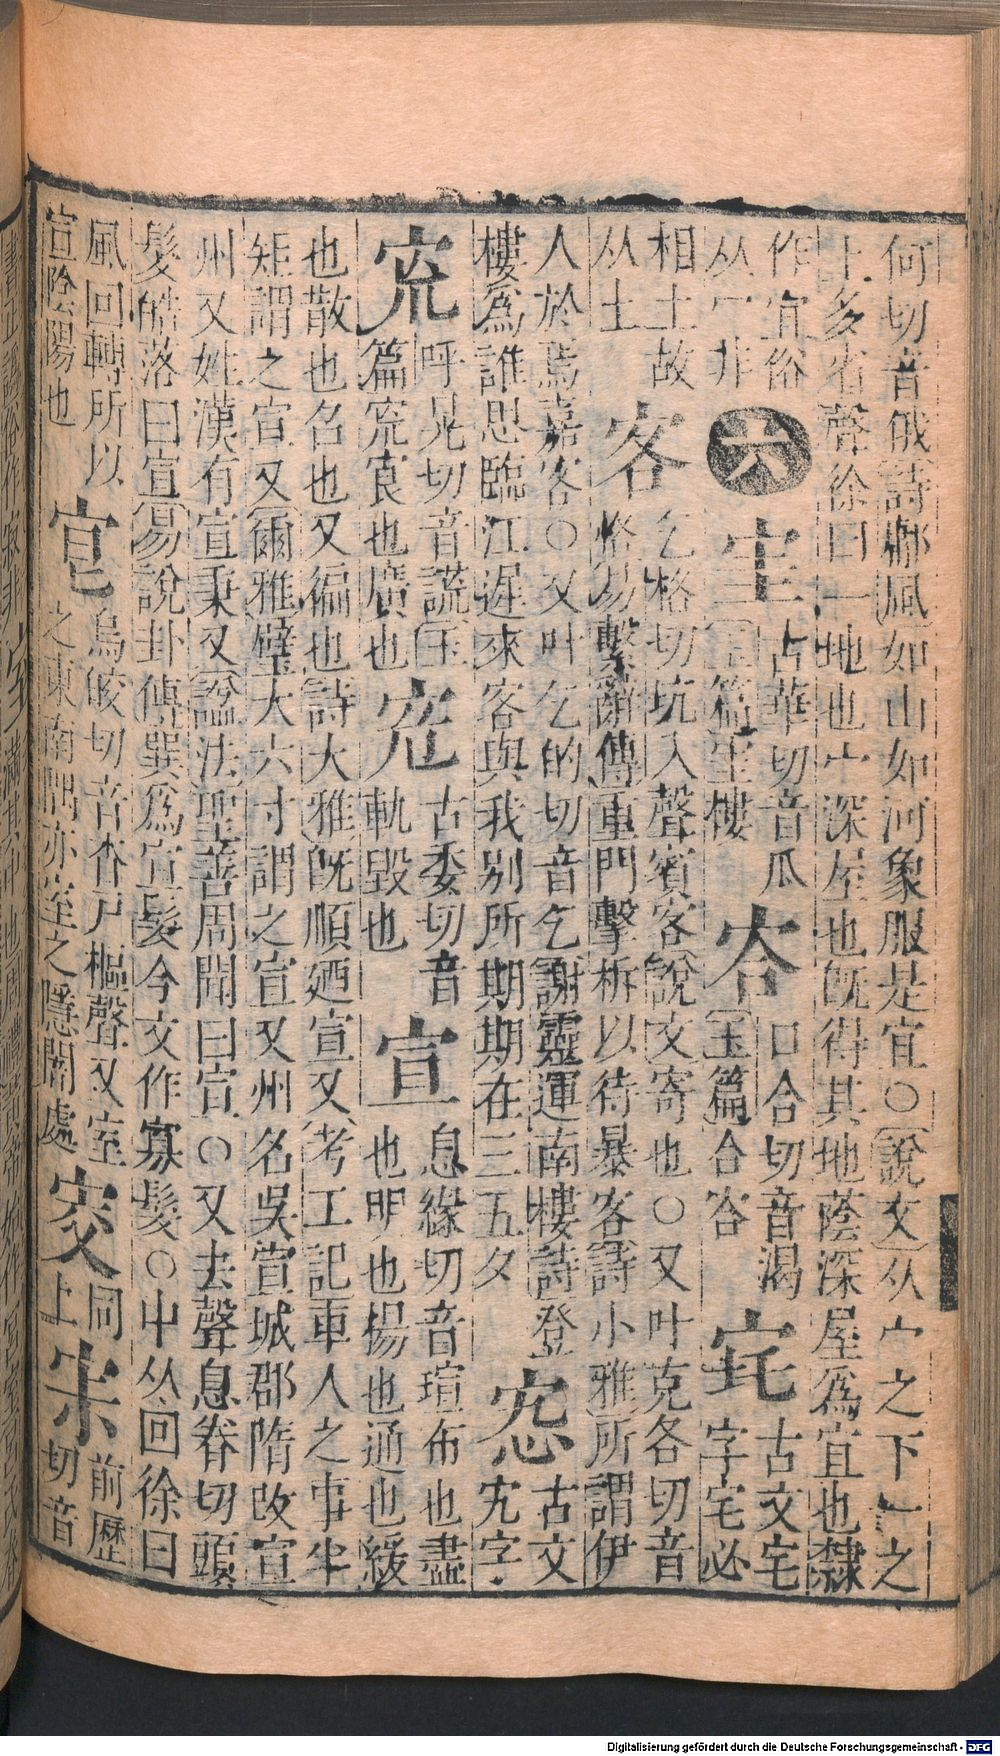 何切音俄詩鄘風如山如河象服是宜○說文从宀之下一之
上多省聲徐曰一地也宀深屋也旣得其地蔭深屋爲宜也隸
作宜俗
从冖非
六
宔
古華切音瓜
玉篇宔樓
㝓
口合切音渴
玉篇合㝓
㡯
古文宅
字宅必
相土故
从土
客
乞格切坑入聲賓客說文寄也○又叶克各切音
恪易繫辭傳重門擊柝以待暴客詩小雅所謂伊
人於焉嘉客○又叶乞的切音乞謝靈運南樓詩登
樓爲誰思臨江遲來客與我别所期期在三五夕
㝌
古文
宄字
㝃
呼晃切音謊玉
篇㝃㝗也廣也
宄
古委切音
軌毀也
宣
息緣切音瑄布也盡
也明也揚也通也緩
也散也召也又徧也詩大雅旣順廼宣又考工記車人之事半
矩謂之宣又爾雅璧大六寸謂之宣又州名吳宣城郡隋改宣
州又姓漢有宣秉又諡法聖善周聞曰宣○又去聲息眷切頭
髮皓落曰宣易說卦傳巽爲宣髮今文作寡髮○中从回徐曰
風回轉所以
宣陰陽也
㝔
烏皎切音杳戸樞聲又室
之東南隅亦室之隱闇處
㝘
同
上
宋
前歷
切音
Digitalisierung gefördert durch die Deutsche Forschungsgemeinschaft - DFG